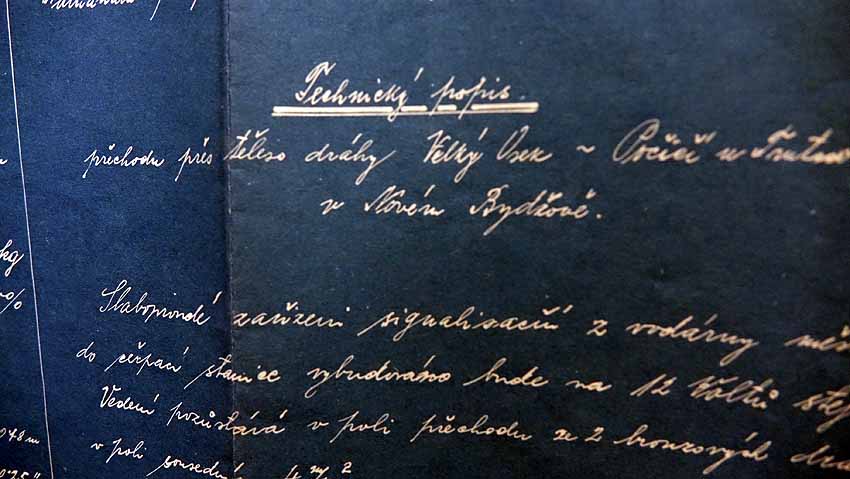 Technický popis.
přechodu přes těleso dráhy Velký Osek ~ Poříčí u Trutno
v Novém Bydžově.
kg
%
Slaboproudé zařízení signalisační z vodárny měs
do čerpací stanice vybudováno bude na 12 Voltů stej
Vedení pozůstává v poli přechodu ze 2 bronzových drá
048 m
v poli sousední 4 2